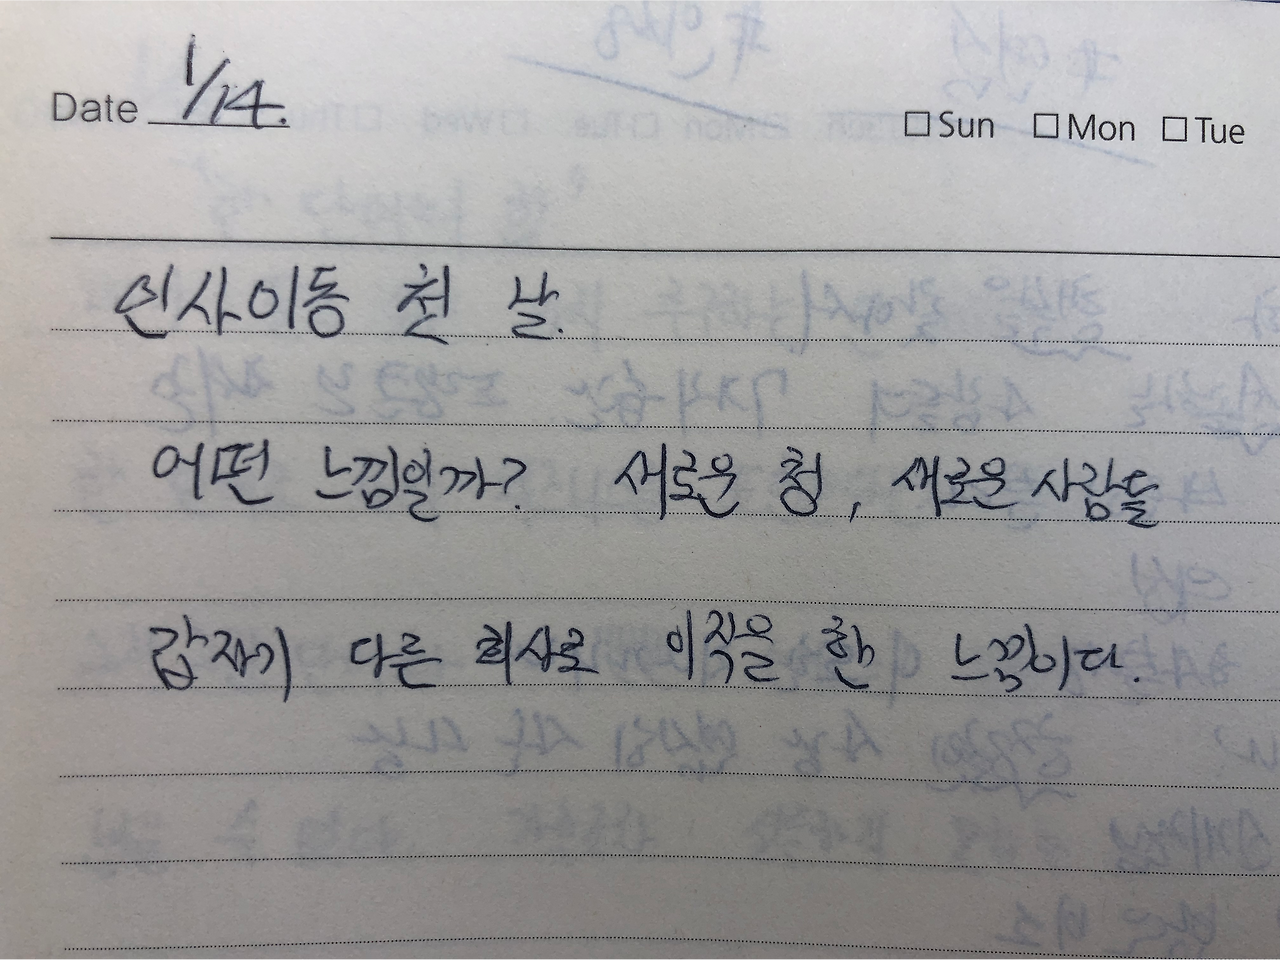 Date 1/14. □Sun □Mon □Tue
인사이동 첫 날.
어떤 느낌일까? 새로운 청, 새로운 사람들
갑자기 다른 회사로 이직을 한 느낌이다.